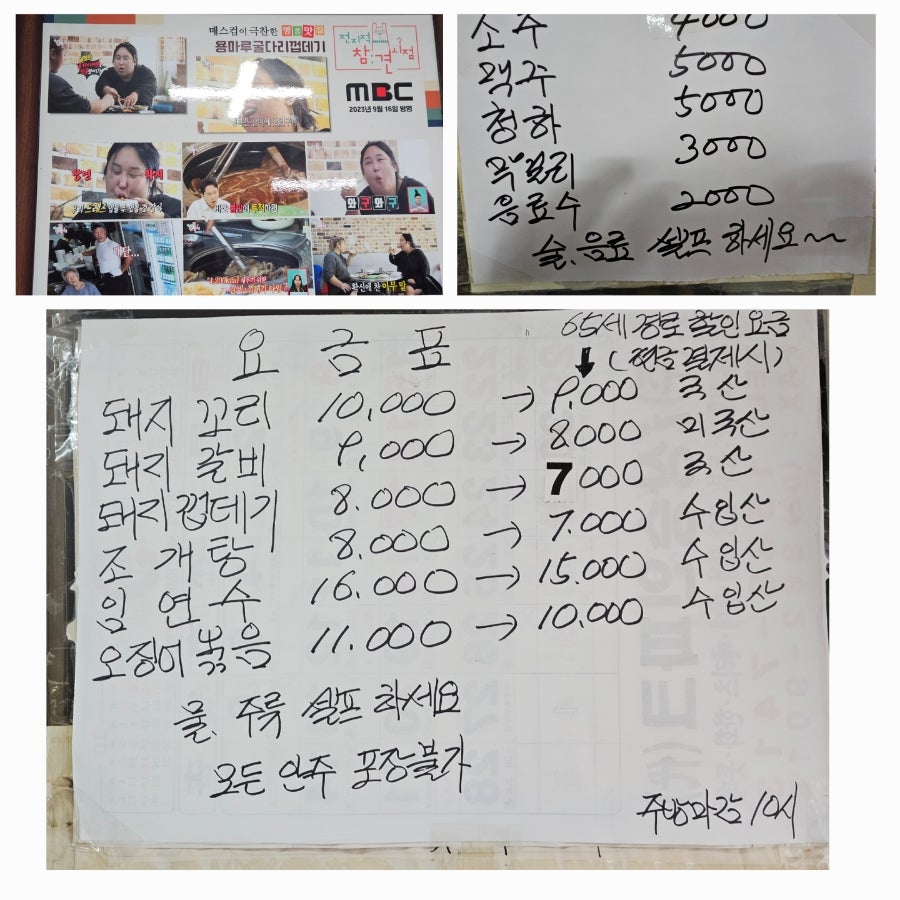 매스컴이 극찬한 명품맛집
용마루굴다리껍데기
전지적
참견
시점
MBC
2023년 9월 16일 방영
와구와구
확신에 찬 이무 말
소주 4000
맥주 5000
청하 5000
막걸리 3000
음료수 2000
술.음료 셀프 하세요~
요금표
65세 경로 할인 요금
(현금 결제시)
돼지 꼬리 10,000 → 9,000 국산
돼지 갈비 9,000 → 8.000 외국산
돼지껍데기 8.000 → 7000 국산
조개탕 8.000 → 7.000 수입산
임연수 16.000 → 15.000 수입산
오징어볶음 11.000 → 10.000 수입산
물. 주류 셀프 하세요
모든 안주 포장불가
주방마감 10시